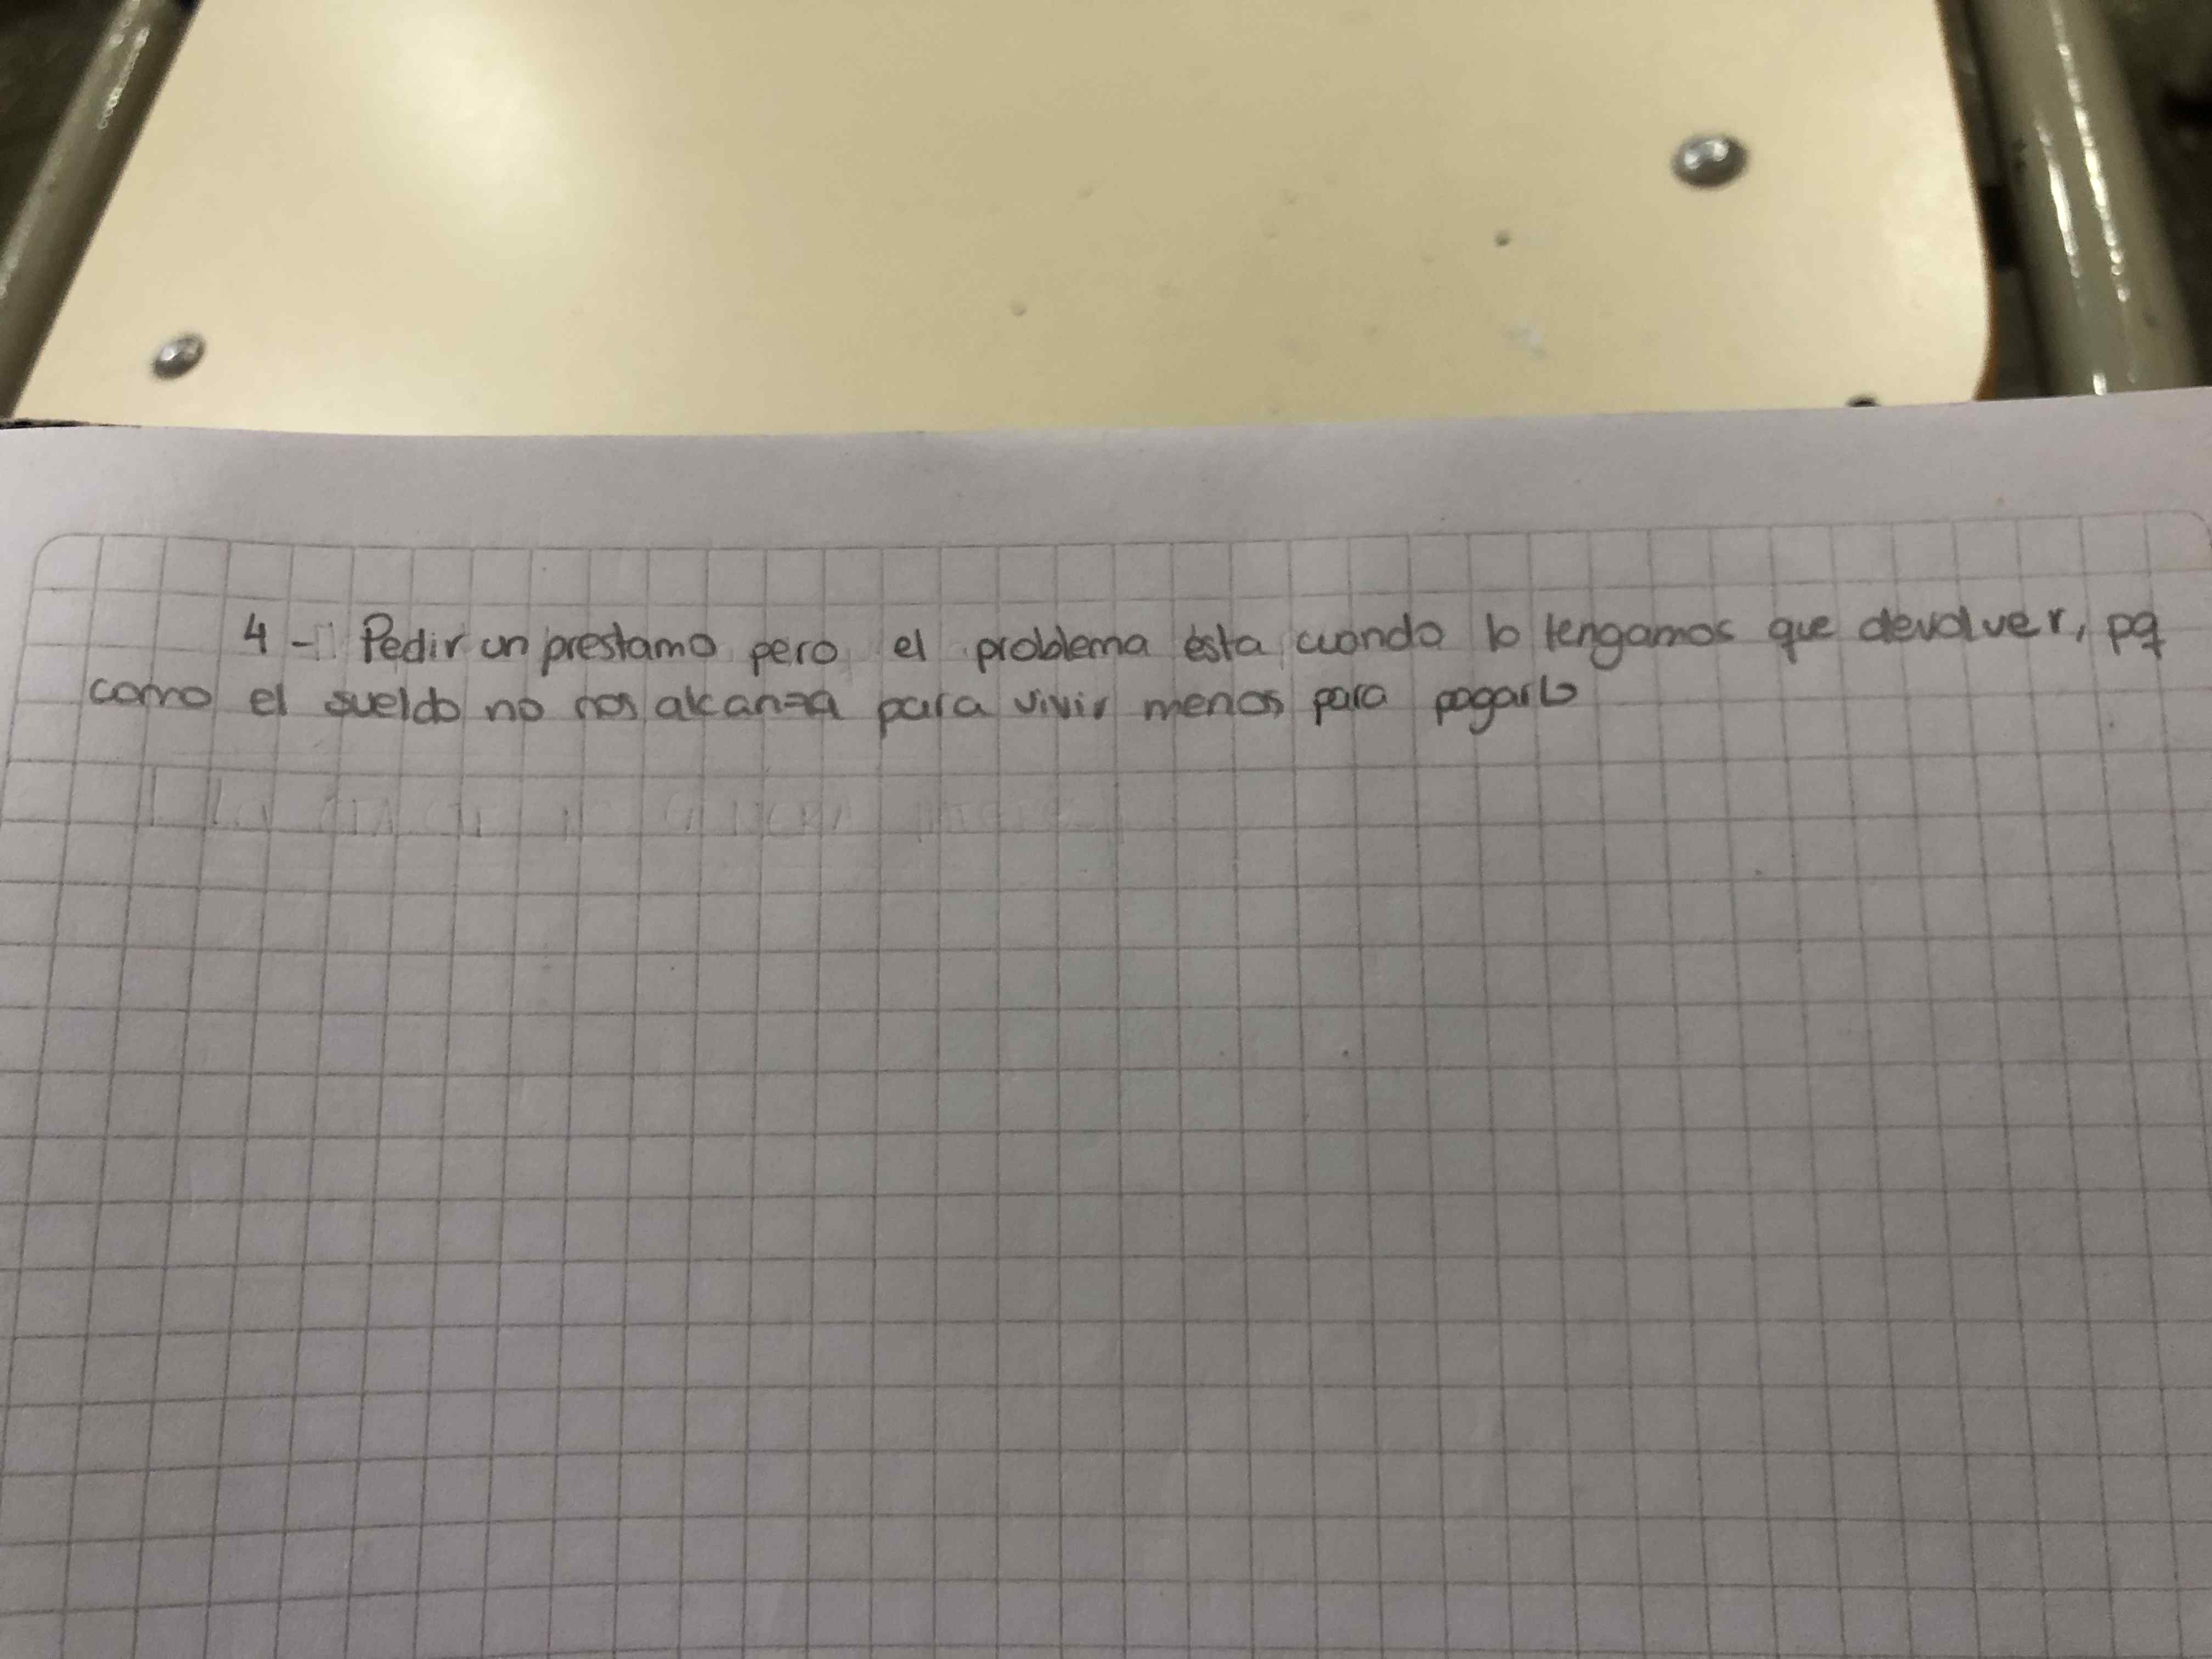 4- Pedir un prestamo pero el problema esta cuando lo tengamos que devolver, pq
como el sueldo no nos alcanza para vivir menos para pagarlo